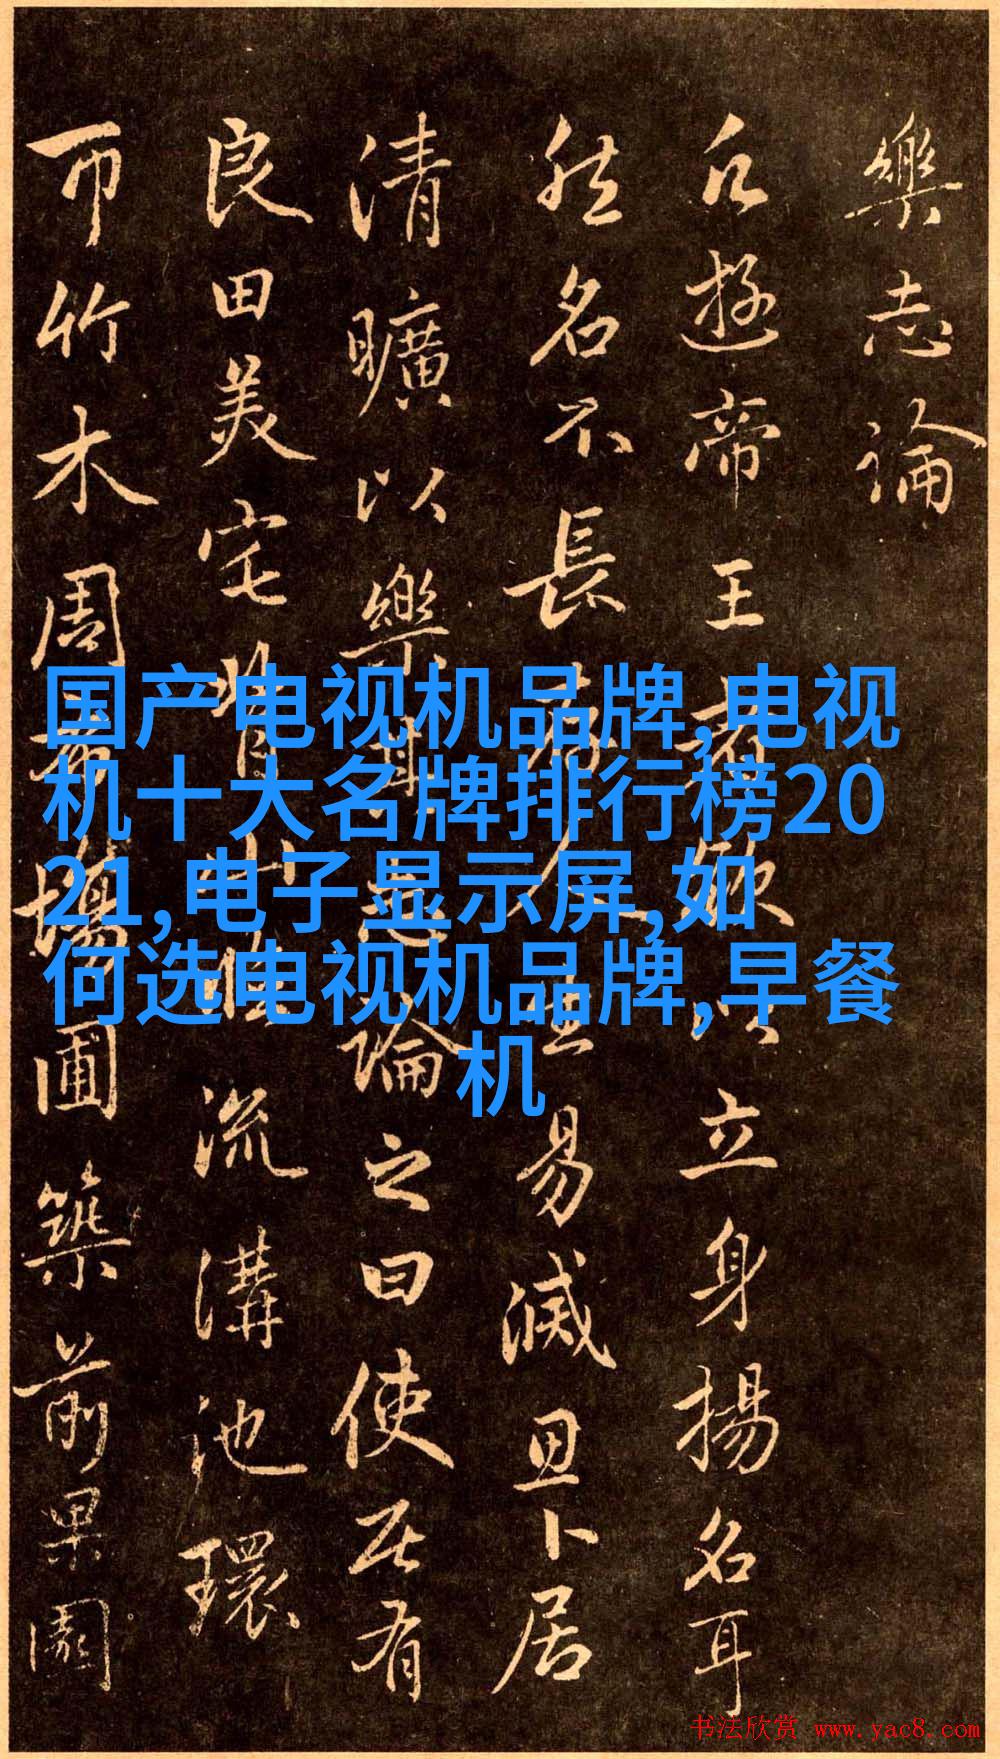 樂志論
凡遊帝王者欲以立身揚名耳
然名不長存人生易滅思卜居
清曠以樂其志論之曰使居有
良田美宅背山臨流溝池環
帀竹木周布場圃築前果園
国产电视机品牌,电视
机十大名牌排行榜20
21,电子显示屏,如
何选电视机品牌,早餐
机
书法欣赏 www.yac8.com